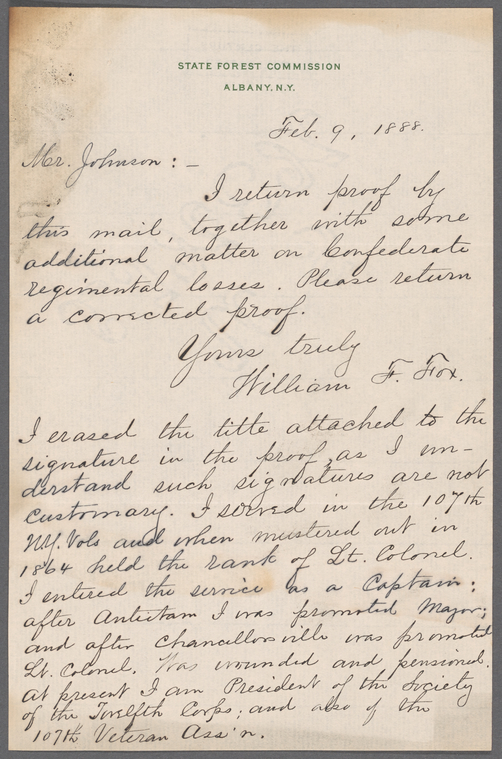 STATE FOREST COMMISSION
ALBANY, N.Y.
Feb. 9, 1888.
Mr. Johnson : –
I return proof by
this mail, together with some
additional matter on Confederate
regimental losses. Please return
a corrected proof.
Yours truly
William F. Fox.
I erased the title attached to the
signature in the proof, as I un-
derstand such signatures are not
customary. I served in the 107th
N.Y. Vols and when mustered out in
1864 held the rank of Lt. Colonel.
I entered the service as a Captain;
after Antietam I was promoted Major;
and after Chancellorsville was promoted
Lt. Colonel. Was wounded and pensioned.
At present I am President of the Society
of the Twelfth Corps; and also of the
107th Veteran Ass'n.